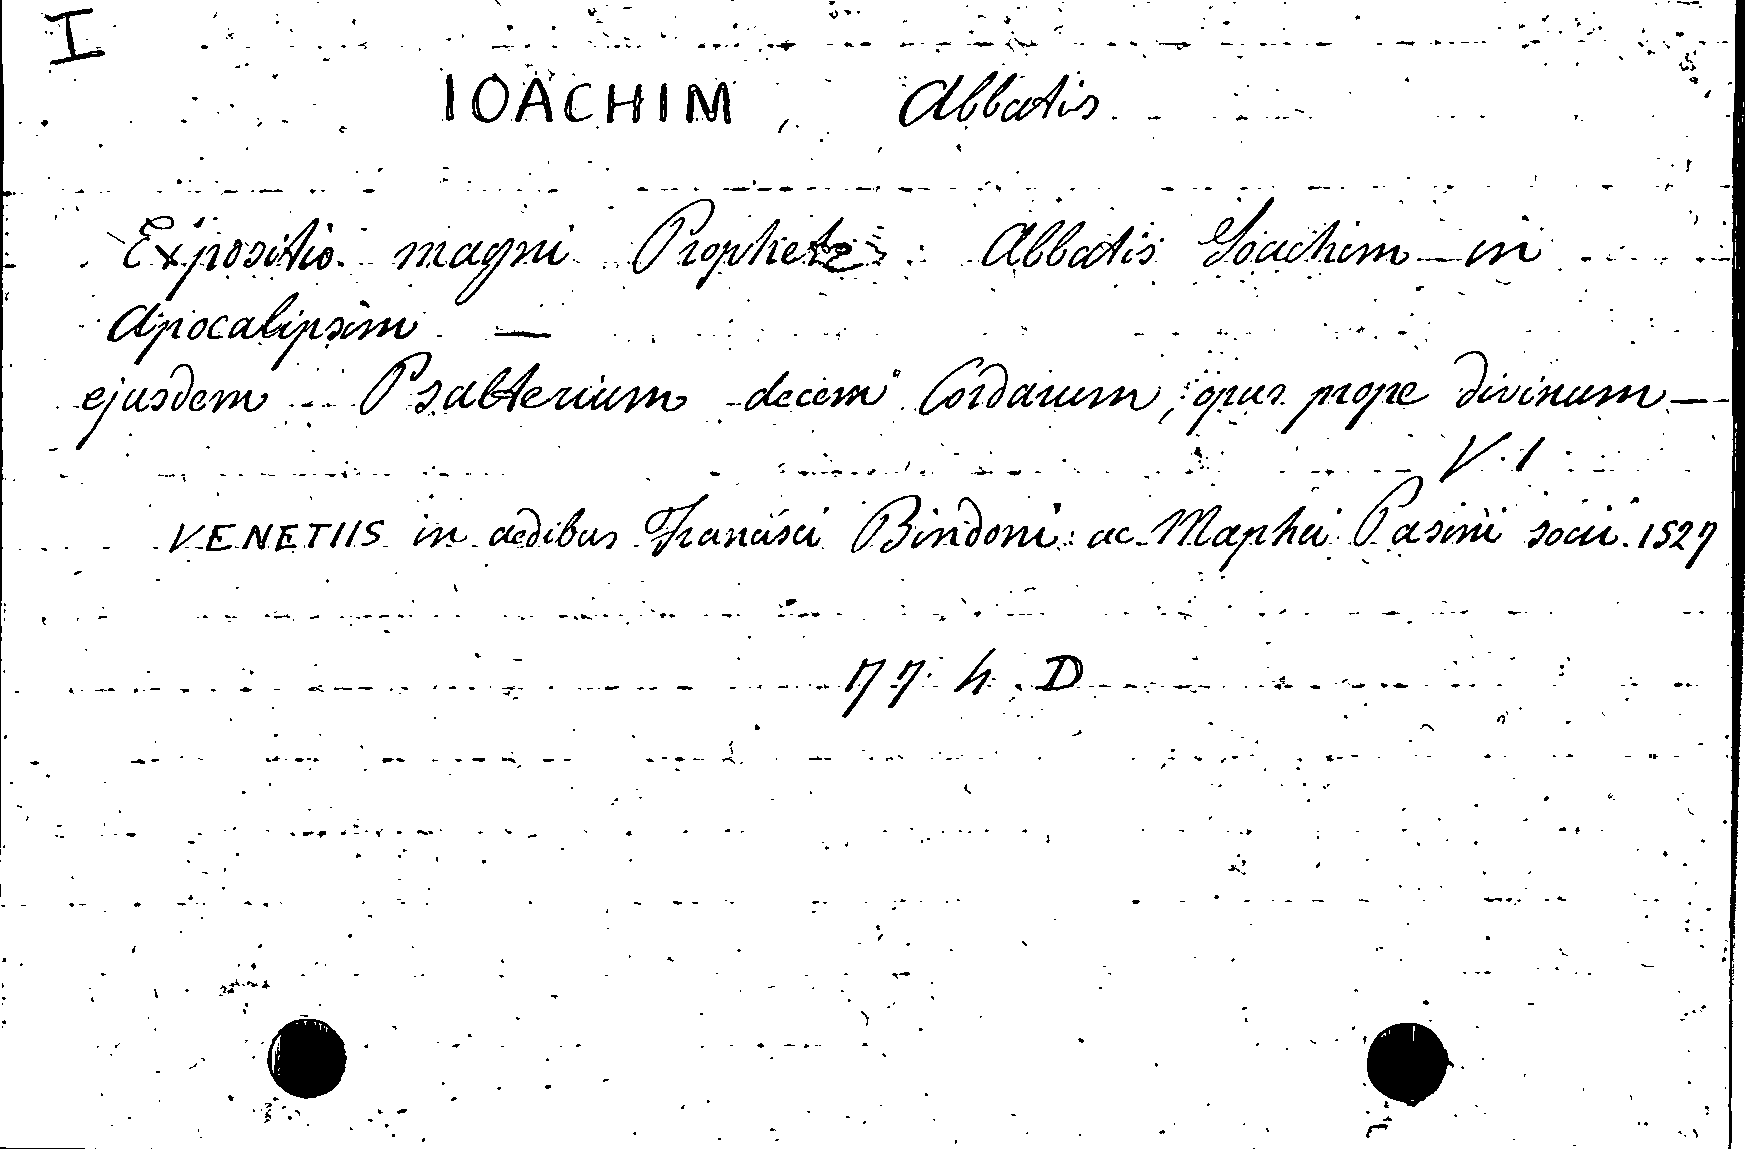 I
IOACHIM, Abbatis
Expositio magni Prophete: Abbatis Joachim in
Apocalipsim —
ejusdem Psalterium decem Cordarum, opus prope divinum —
V. 1
VENETIIS in aedibus Francisci Bindoni ac Maphei Pasini socii. 1527
77. 4. D